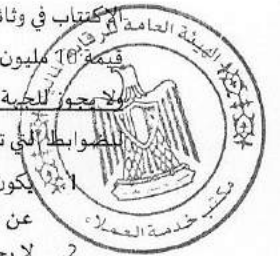 الاكتتاب في وثائق
قيمة 10 مليون
ولا يجوز للجهة
للضوابط التي
1. يكون
عن
2. لا يجـ
الهيئة العامة للرقابة المالية
مكتب خدمة العملاء